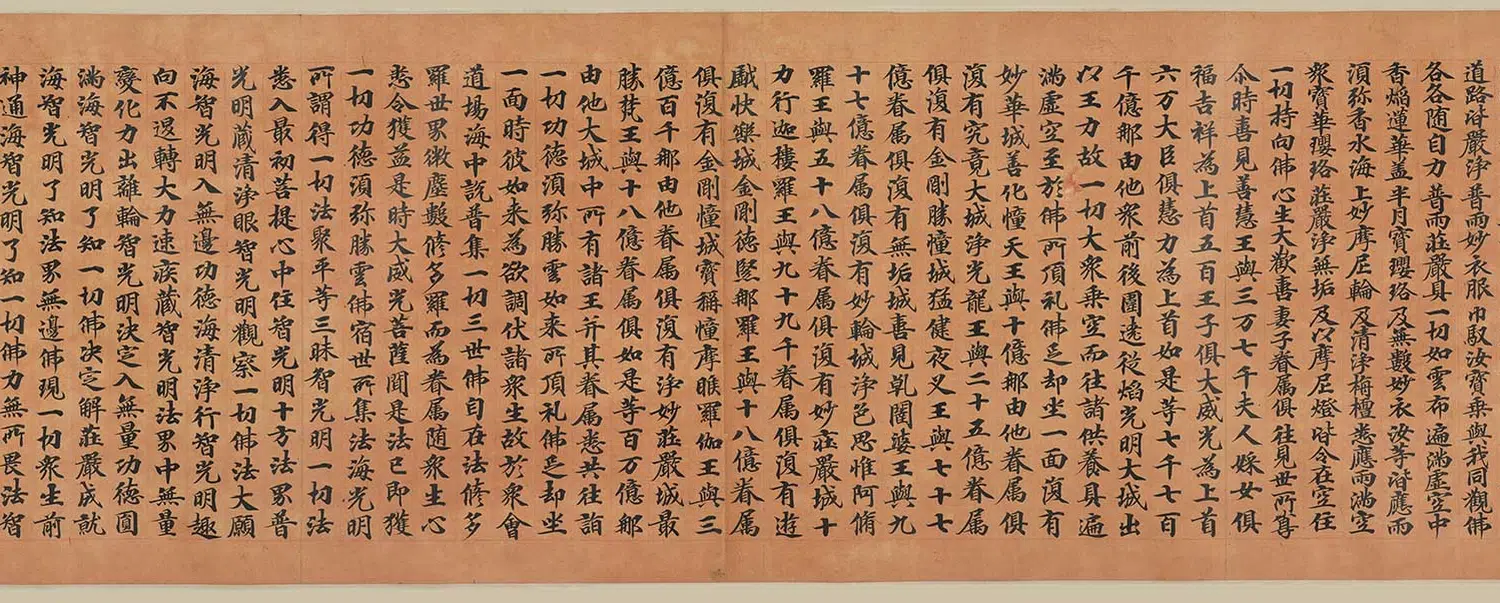 道路皆嚴淨普雨妙衣服巾馭汝寶乘與我同觀佛
各各随自力普雨莊嚴具一切如雲布遍滿虛空中
香焰蓮華盖半月寶瓔珞及無數妙衣汝等皆應雨
湏弥香水海上妙摩尼輪及清淨栴檀悉應雨滿空
衆寶華瓔珞莊嚴淨無垢及以摩尼燈皆令在空住
一切持向佛心生大歡喜妻子眷属俱往見世所尊
尒時喜見善慧王與三万七千夫人婇女俱
福吉祥為上首五百王子俱大威光為上首
六万大臣俱慧力為上首如是等七千七百
千億那由他衆前後圍遶從焰光明大城出
以王力故一切大衆乗空而往諸供養具遍
滿虛空至於佛所頂礼佛足却坐一面復有
妙華城善化幢天王與十億那由他眷属俱
復有究竟大城淨光龍王與二十五億眷属
俱復有金剛勝幢城猛健夜叉王與七十七
億眷属俱復有無垢城喜見乹闥婆王與九
十七億眷属俱復有妙輪城淨色思惟阿脩
羅王與五十八億眷属俱復有妙莊嚴城十
力行迦樓羅王與九十九千眷属俱復有遊
戲快樂城金剛德緊那羅王與十八億眷属
俱復有金剛幢城寶稱幢摩睺羅伽王與三
億百千那由他眷属俱復有淨妙莊嚴城最
勝梵王與十八億眷属俱如是等百万億那
由他大城中所有諸王并其眷属悉共往詣
一切功德湏弥勝雲如来所頂礼佛足却坐
一面時彼如来為欲調伏諸衆生故於衆會
道場海中說普集一切三世佛自在法修多
羅世界微塵數修多羅而為眷属随衆生心
悉令獲益是時大威光菩薩聞是法已即獲
一切功德湏弥勝雲佛宿世所集法海光明
所謂得一切法聚平等三昧智光明一切法
悉入最初菩提心中住智光明十方法界普
光明藏清淨眼智光明觀察一切佛法大願
海智光明入無邊功德海清淨行智光明趣
向不退轉大力速疾藏智光明法界中無量
變化力出離輪智光明決定入無量功德圓
滿海智光明了知一切佛決定解莊嚴成就
海智光明了知法界無邊佛現一切衆生前
神通海智光明了知一切佛力無所畏法智